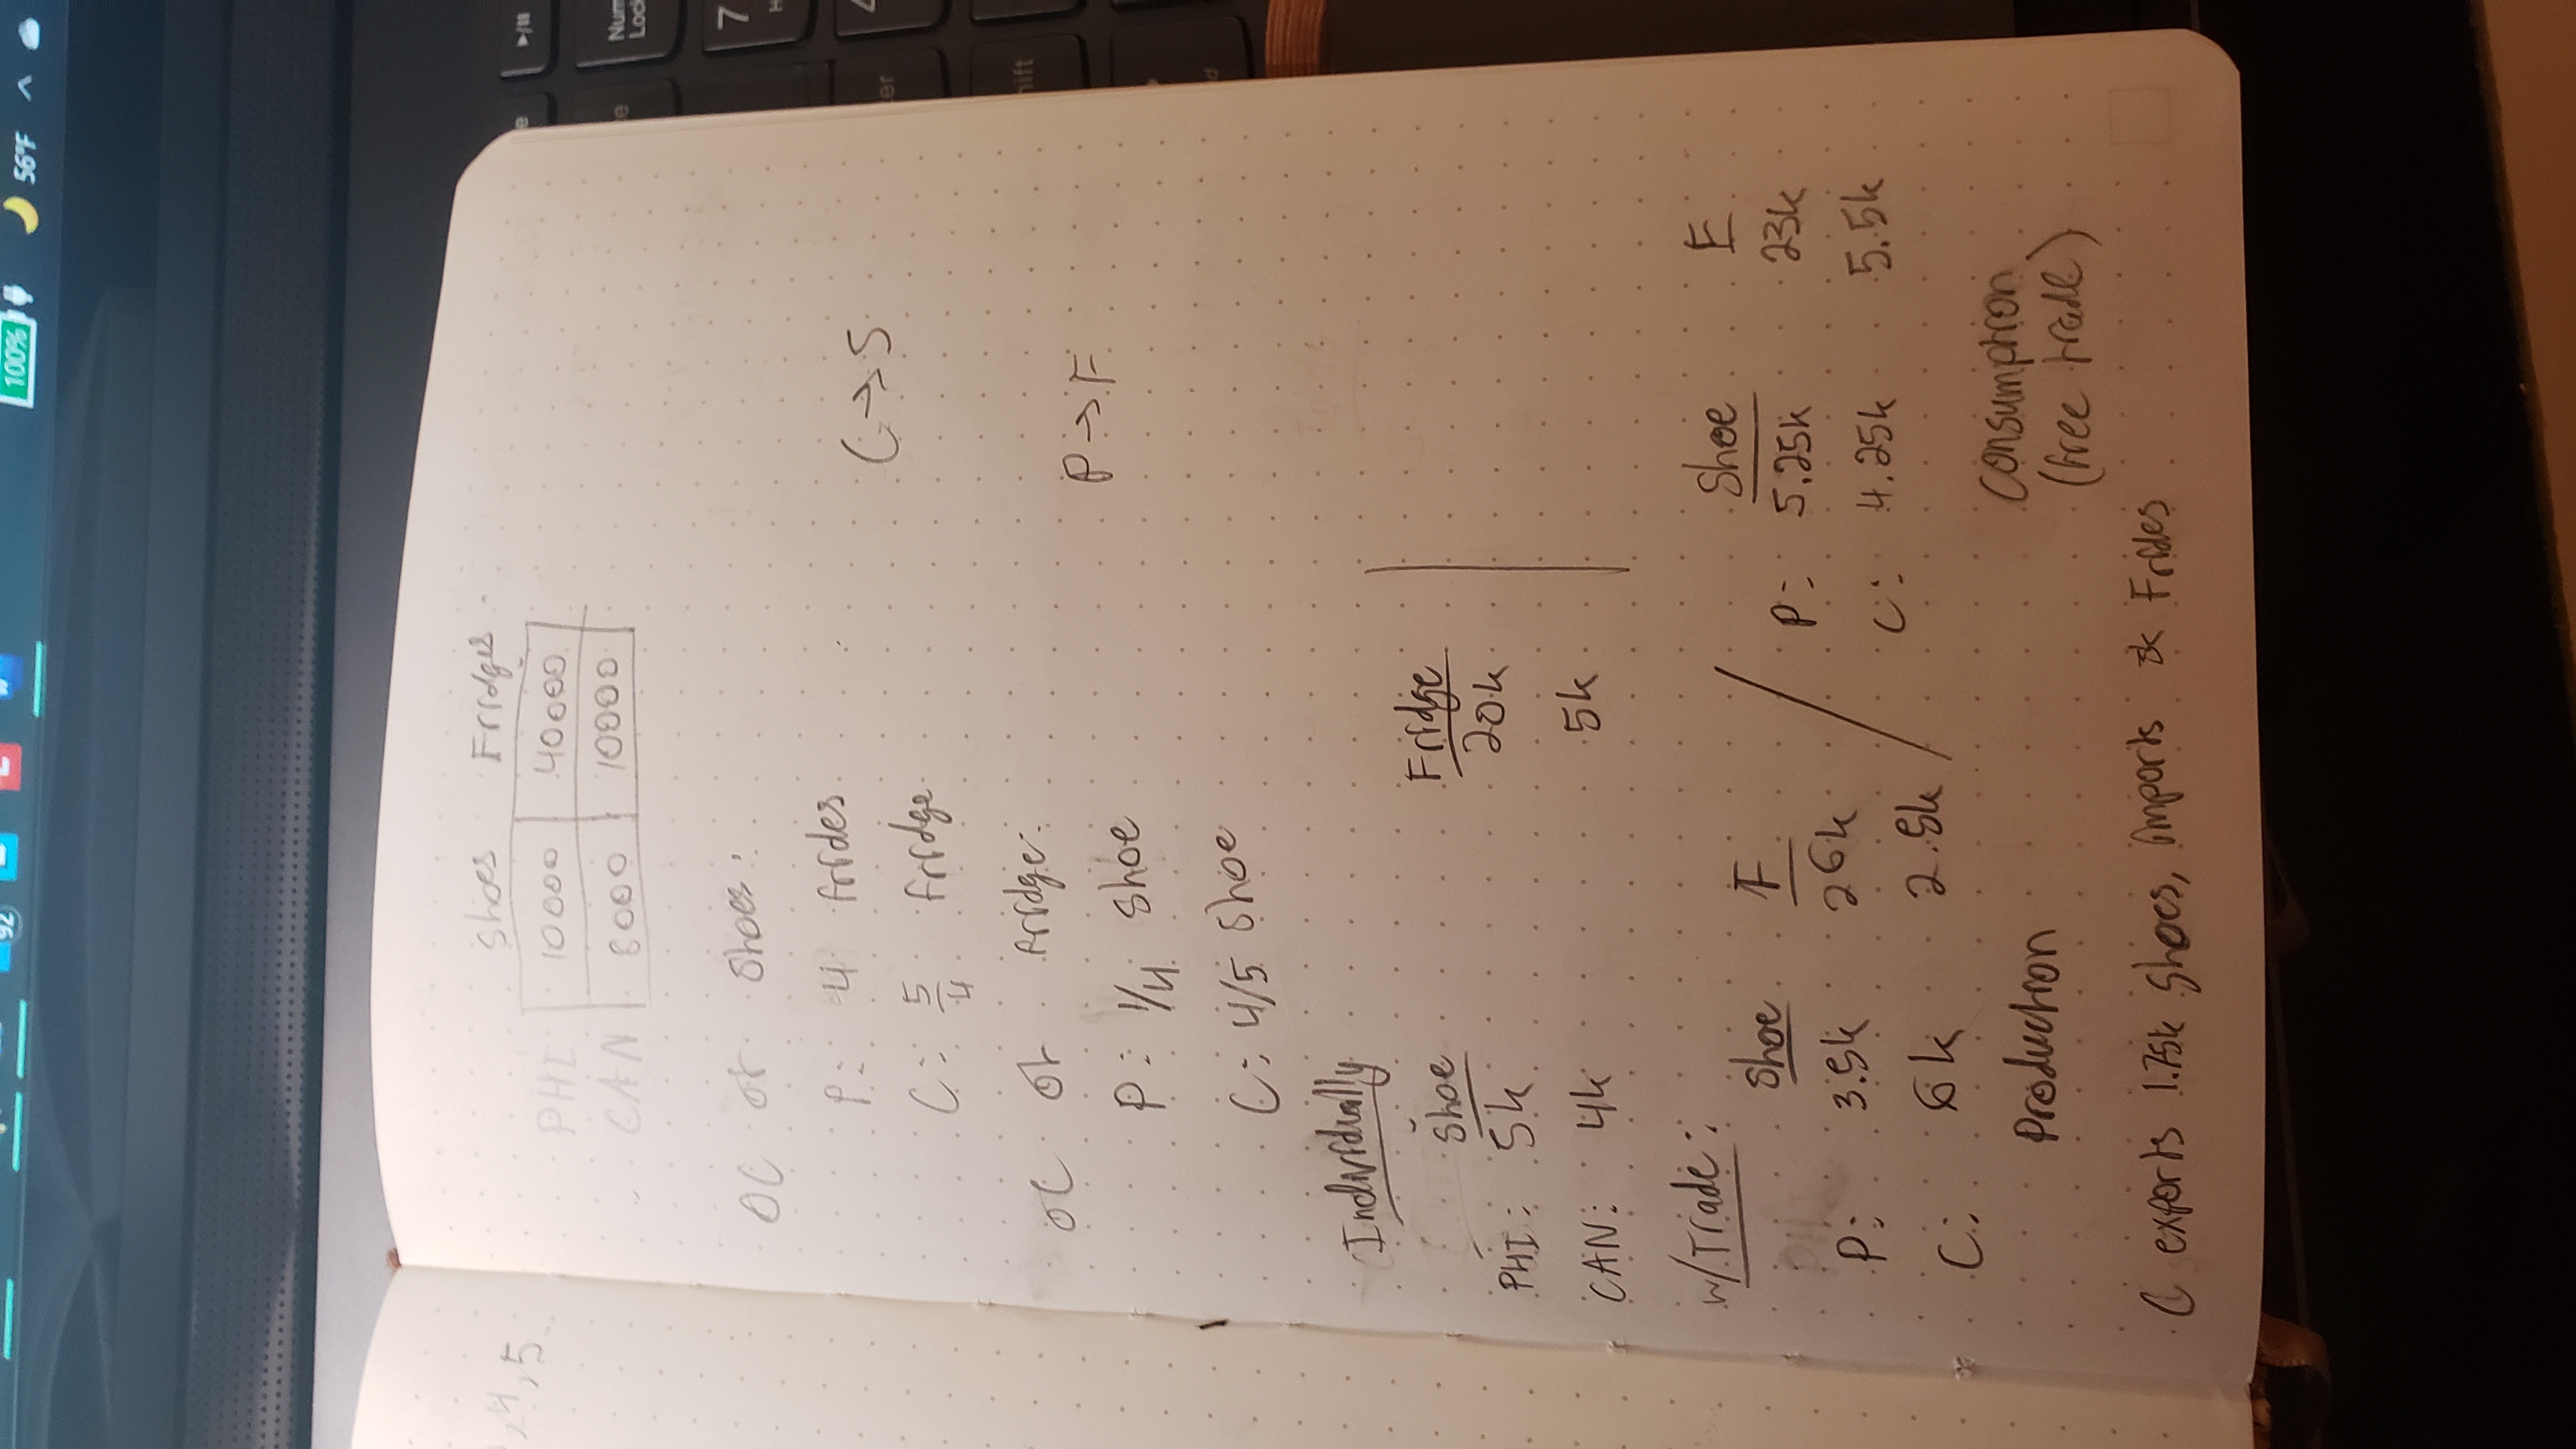 92
100%
56°F
,4,5
Shoes Fridges
PHI 10000 40000
CAN 8000 10000
OC of Shoes:
P: 4 fridges
C: 5/4 fridge
C → S
OC of Fridge:
P → F
P: 1/4 shoe
C: 4/5 shoe
Individually
Shoe Fridge
PHI: 5k 20k
CAN: 4k 5k
w/Trade:
Shoe F
P: 3.5k 26k
C: 6k 2.5k
Production
Shoe F
P: 5.25k 23k
C: 4.25k 5.5k
Consumption
(free trade)
C exports 1.75k shoes, imports 3k Frides
Num
Lock
7